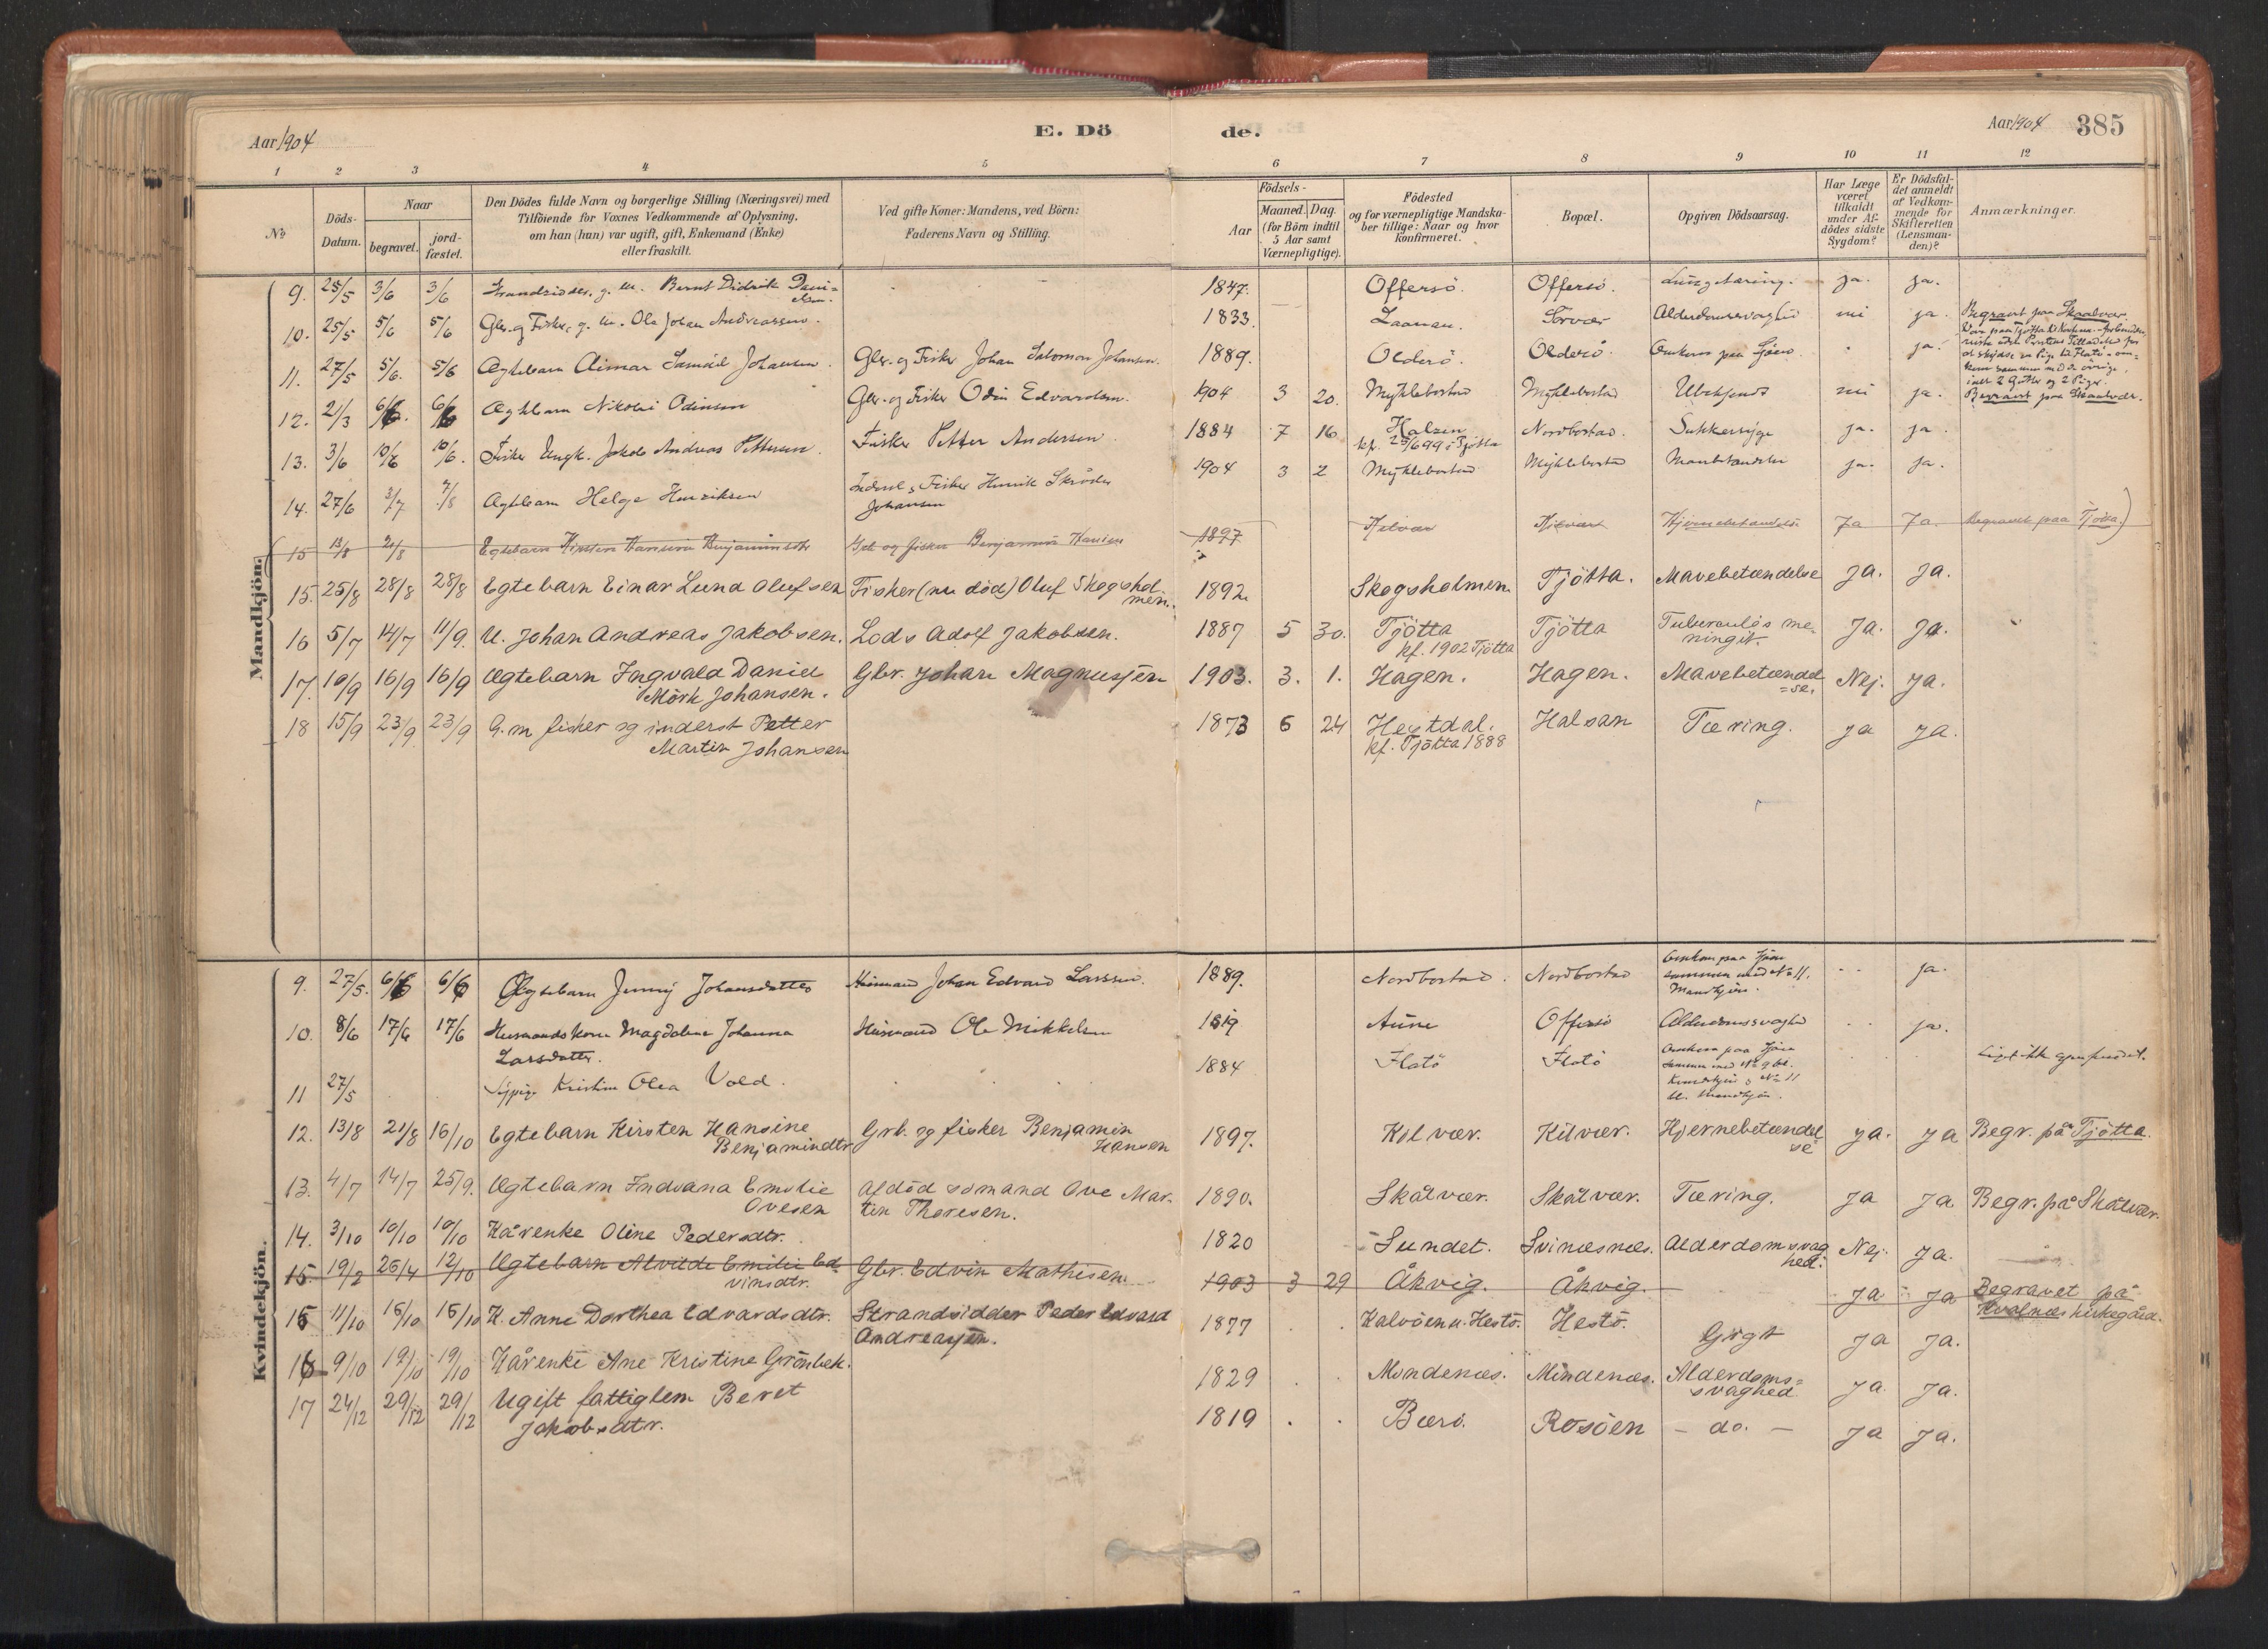 Aar 1904
E. Dö
de.
Aar 1904 385
1 2 3 4 5 6 7 8 9 10 11 12
No
Döds-Datum.
Naar
begravet.
jord-fæstet.
Den Dödes fulde Navn og borgerlige Stilling (Næringsvei) med
Tilföiende for Voxnes Vedkommende af Oplysning,
om han (hun) var ugift, gift, Enkemand (Enke)
eller fraskilt.
Ved gifte Koner: Mandens, ved Börn:
Faderens Navn og Stilling.
Födsels-
Aar
Maaned. Dag.
(for Börn indtil
5 Aar samt
Værnepligtige).
Födested
og for værnepligtige Mandska-
ber tillige: Naar og hvor
konfirmeret.
Bopæl.
Opgiven Dödsaarsag.
Har Læge
været
tilkaldt
under Af-
dödes sidste
Sygdom?
Er Dödsfal-
det anmeldt
af Vedkom-
mende for
Skifteretten
(Lensman-
den)?
Anmærkninger.
Mandkjön.
9. 25/5 3/6 3/6 Strandsidder, g. m. Bernt Didrik Dani-
elsen. 1847. Offersö. Offersö. Lungetæring. ja. ja.
10. 25/5 5/6 5/6 Gbr. og Fisker, g. m. Ole Johan Andreassen. 1833. Laanan. Sörvær Alderdomssvaghed nei ja. Begravet paa Skaalvær.
11. 27/5 5/6. 5/6 Ægtebarn Eimar Samuel Johansen. Gbr. og Fisker Johan Salomon Johansen. 1889. Olderö. Olderö. Omkom paa Sjöen. ja.
12. 21/3 6/6. 6/6 Ægtebarn Nikolai Odinsen Gbr. og Fisker Odin Edvardsen. 1904 3 20. Myklebostad Myklebostad Ubekjendt nei ja. Begravet paa Skaalvær.
13. 3/6 10/6 10/6. Fisker Ungk. Jakob Andreas Pettersen. Fisker Petter Andersen. 1884 7 16 Halsen
kf. 25/6 99 i Tjötta Nordbostad. Sukkersyge ja. ja.
14. 27/6 3/7 7/8 Ægtebarn Helge Henriksen Inderst, Fisker Henrik Skröder
Johansen 1904 3 2 Myklebostad Myklebostad ja. ja.
15 13/8 21/8 Egtebarn Kirsten Hansine Benjaminsdtr Gbr og fisker Benjamin Hansen 1897 Kilvær Kilvær Hjernebetændelse Ja Ja. Begravet paa Tjötta.)
15. 25/8 28/8 28/8 Egtebarn Einar Lund Olufsen Fisker (nu död) Oluf Skogshol
men. 1892. Skogsholmen Tjötta. Mavebetændelse ja. ja.
16 5/7 14/7 11/9. U. Johan Andreas Jakobsen. Lods Adolf Jakobsen. 1887 5 30. Tjötta
kf. 1902 Tjötta Tjötta Tuberculös me-
ningit. Ja. Ja.
17. 10/9 16/9 16/9 Ægtebarn Ingvald Daniel
Mörk Johansen. Gbr. Johan Magnussen 1903. 3. 1. Hagen. Hagen. Mavebetændel
=se. Nej. ja.
18 15/9 23/9. 23/9 G. m. fisker og inderst Petter
Martin Johansen 1873 6 24 Hestdal.
kf. Tjötta 1888 Halsan Tæring. ja ja.
Kvindekjön.
9. 27/5. 6/6 6/6 Ægtebarn Jenny Johansdatter Husmand Johan Edvard Larsen. 1889. Nordbostad. Nordbostad Omkom paa Sjöen
sammen med No 11.
Mandkjön. ja.
10. 8/6 17/6 17/6 Husmandskone Magdalena Johanna
Larsdatter. Husmand Ole Mikkelsen 1819 Aune Offersö Alderdomssvaghed ja.
11 27/5 Kristine Olea Vold. 1884 Flatö Flatö Omkom paa Sjöen
sammen med No 9 bl.
Kvindekjön, No 11
bl. Mandkjön. Liget ikke gjenfundet.
12. 13/8 21/8 16/10 Egtebarn Kirsten Hansine
Benjamindtr. Grb. og fisker Benjamin
Hansen 1897. Kilvær. Kilvær. Hjernebetændel
se ja. ja Begr. på Tjötta.
13. 4/7 14/7 25/9. Ægtebarn Indiana Emilie
Ovesen Afdöd sömand Ove Mar-
tin Thoresen. 1890. Skålvær. Skålvær. Tæring. ja ja Begr. på Skålvær.
14. 3/10 10/10 10/10 Kårenke Oline Pedersdtr. 1820 Sundet. Svinæsnæs. Alderdomsvag
hed. Nej. ja.
15. 19/2 26/4 12/10 Ægtebarn Alvilde Emilie Ed-
vinsdtr. Gbr. Edvin Mathisen. 1903 3 29 Åkvig. Åkvig. ja ja Begravet på
Kvalnæs kirkegård.
15 11/10 15/10 15/10 K. Anne Dorthea Edvardsdtr. Strandsidder Peder Edvard
Andreassen. 1877 Kalvöen u. Hestö. Hestö. Gigt ja ja.
16 9/10 19/10 19/10 Kårenke Ane Kristine Grönbek. 1829 Mindenæs. Mindenæs. Alderdoms=
svaghed ja. ja.
17 24/12 29/12 29/12 Ugift fattiglem Beret
Jakobsdtr. 1819 Bærö. Rosöen – do. – ja ja.